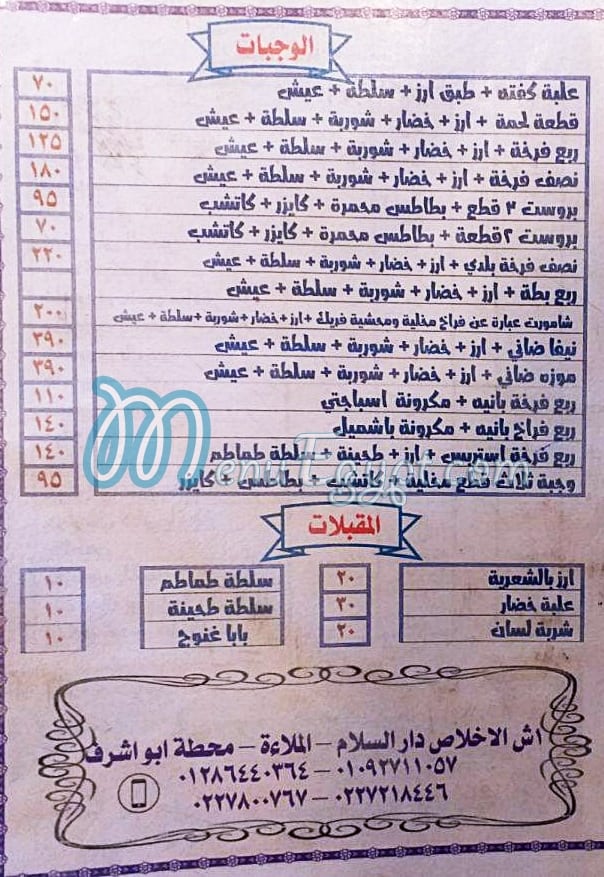 الوجبات
علبة كفته + طبق ارز + سلطة + عيش ٧٠
قطعة لحمة + ارز + خضار + شوربة + سلطة + عيش ١٥٠
ربع فرخة + ارز + خضار + شوربة + سلطة + عيش ١٢٥
نصف فرخة + ارز + خضار + شوربة + سلطة + عيش ١٨٠
بروست ٣ قطع + بطاطس محمرة + كايزر + كاتشب ٩٥
بروست ٢ قطعة + بطاطس محمرة + كايزر + كاتشب ٧٠
نصف فرخة بلدي + ارز + خضار + شوربة + سلطة + عيش ٢٢٠
ربع بطة + ارز + خضار + شوربة + سلطة + عيش
شامورت عبارة عن فراخ مخلية ومحشية فريك + ارز + خضار + شوربة + سلطة + عيش ٢٠٠
نيفا ضاني + ارز + خضار + شوربة + سلطة + عيش ٢٩٠
موزه ضاني + ارز + خضار + شوربة + سلطة + عيش ٢٩٠
ربع فرخة بانيه + مكرونة اسباجتي ١١٠
ربع فراخ بانيه + مكرونة باشميل ١٤٠
ربع فرخة استربس + ارز + طحينة + سلطة طماطم ١٤٠
وجبة ثلاث قطع مخلية + كاتشب + بطاطس + كايزر ٩٥
MenuEgypt.com
المقبلات
ارز بالشعرية ٢٠ سلطة طماطم ١٠
علبة خضار ٣٠ سلطة طحينة ١٠
شربة لسان ٢٠ بابا غنوج ١٠
اش الاخلاص دار السلام - الملاءة - محطة ابو اشرف
٠١٠٩٢٧١١٠٥٧ - ٠١٢٨٦٤٤٠٣٦٤
٠٢٢٧٢١٨٤٤٦ - ٠٢٢٧٨٠٠٧٦٧